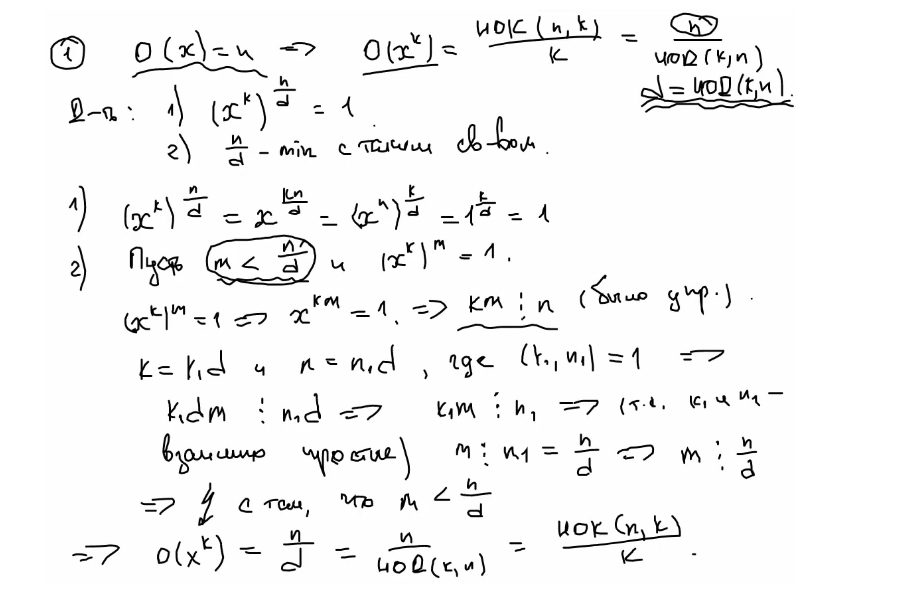 ① O(x) = n => O(x^k) = НОК(n, k)/k = n/НОД(k, n)
d = НОД(k, n).
Д-ть: 1) (x^k)^(n/d) = 1
2) n/d - min с таким св-вом.
1) (x^k)^(n/d) = x^(kn/d) = (x^n)^(k/d) = 1^(k/d) = 1
2) Пусть m < n/d и (x^k)^m = 1.
(x^k)^m = 1 => x^(km) = 1. => km ⋮ n (было упр.).
k = k₁d и n = n₁d, где (k₁, n₁) = 1 =>
k₁dm ⋮ n₁d => k₁m ⋮ n₁ => (т.к. k₁ и n₁ -
взаимно простые) m ⋮ n₁ = n/d => m ⋮ n/d
=> ↯ с тем, что m < n/d
=> O(x^k) = n/d = n/НОД(k, n) = НОК(n, k)/k.